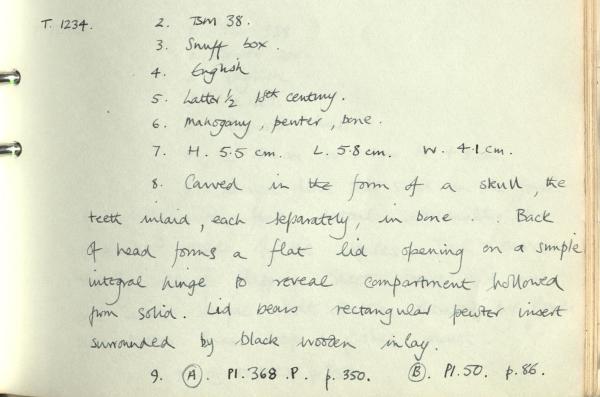 T. 1234. 2. TSM 38.
3. Snuff box.
4. English
5. Latter 1/2 18th century.
6. Mahogany, pewter, bone.
7. H. 5.5 cm. L. 5.8 cm. W. 4.1 cm.
8. Carved in the form of a skull, the
teeth inlaid, each separately, in bone. Back
of head forms a flat lid opening on a simple
integral hinge to reveal compartment hollowed
from solid. Lid bears rectangular pewter insert
surrounded by black wooden inlay.
9. (A). Pl. 368 .P. p. 350. (B). Pl. 50. p. 86.